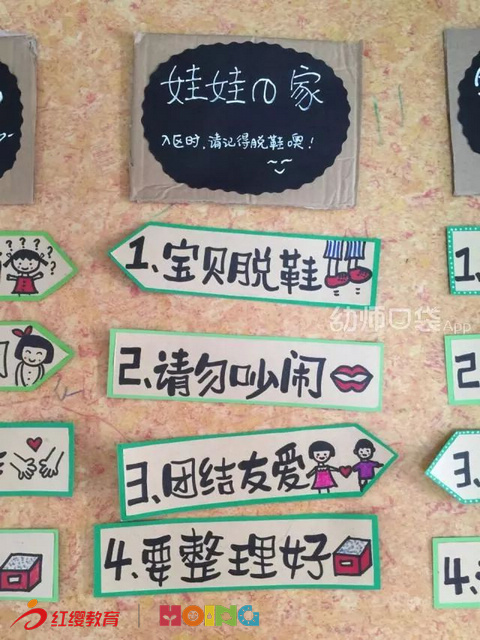 娃娃の家
入区时,请记得脱鞋噢!
1、宝贝脱鞋
2、请勿吵闹
3、团结友爱
4、要整理好
???
1、
2
3、
4、
幼师口袋App
红缨教育